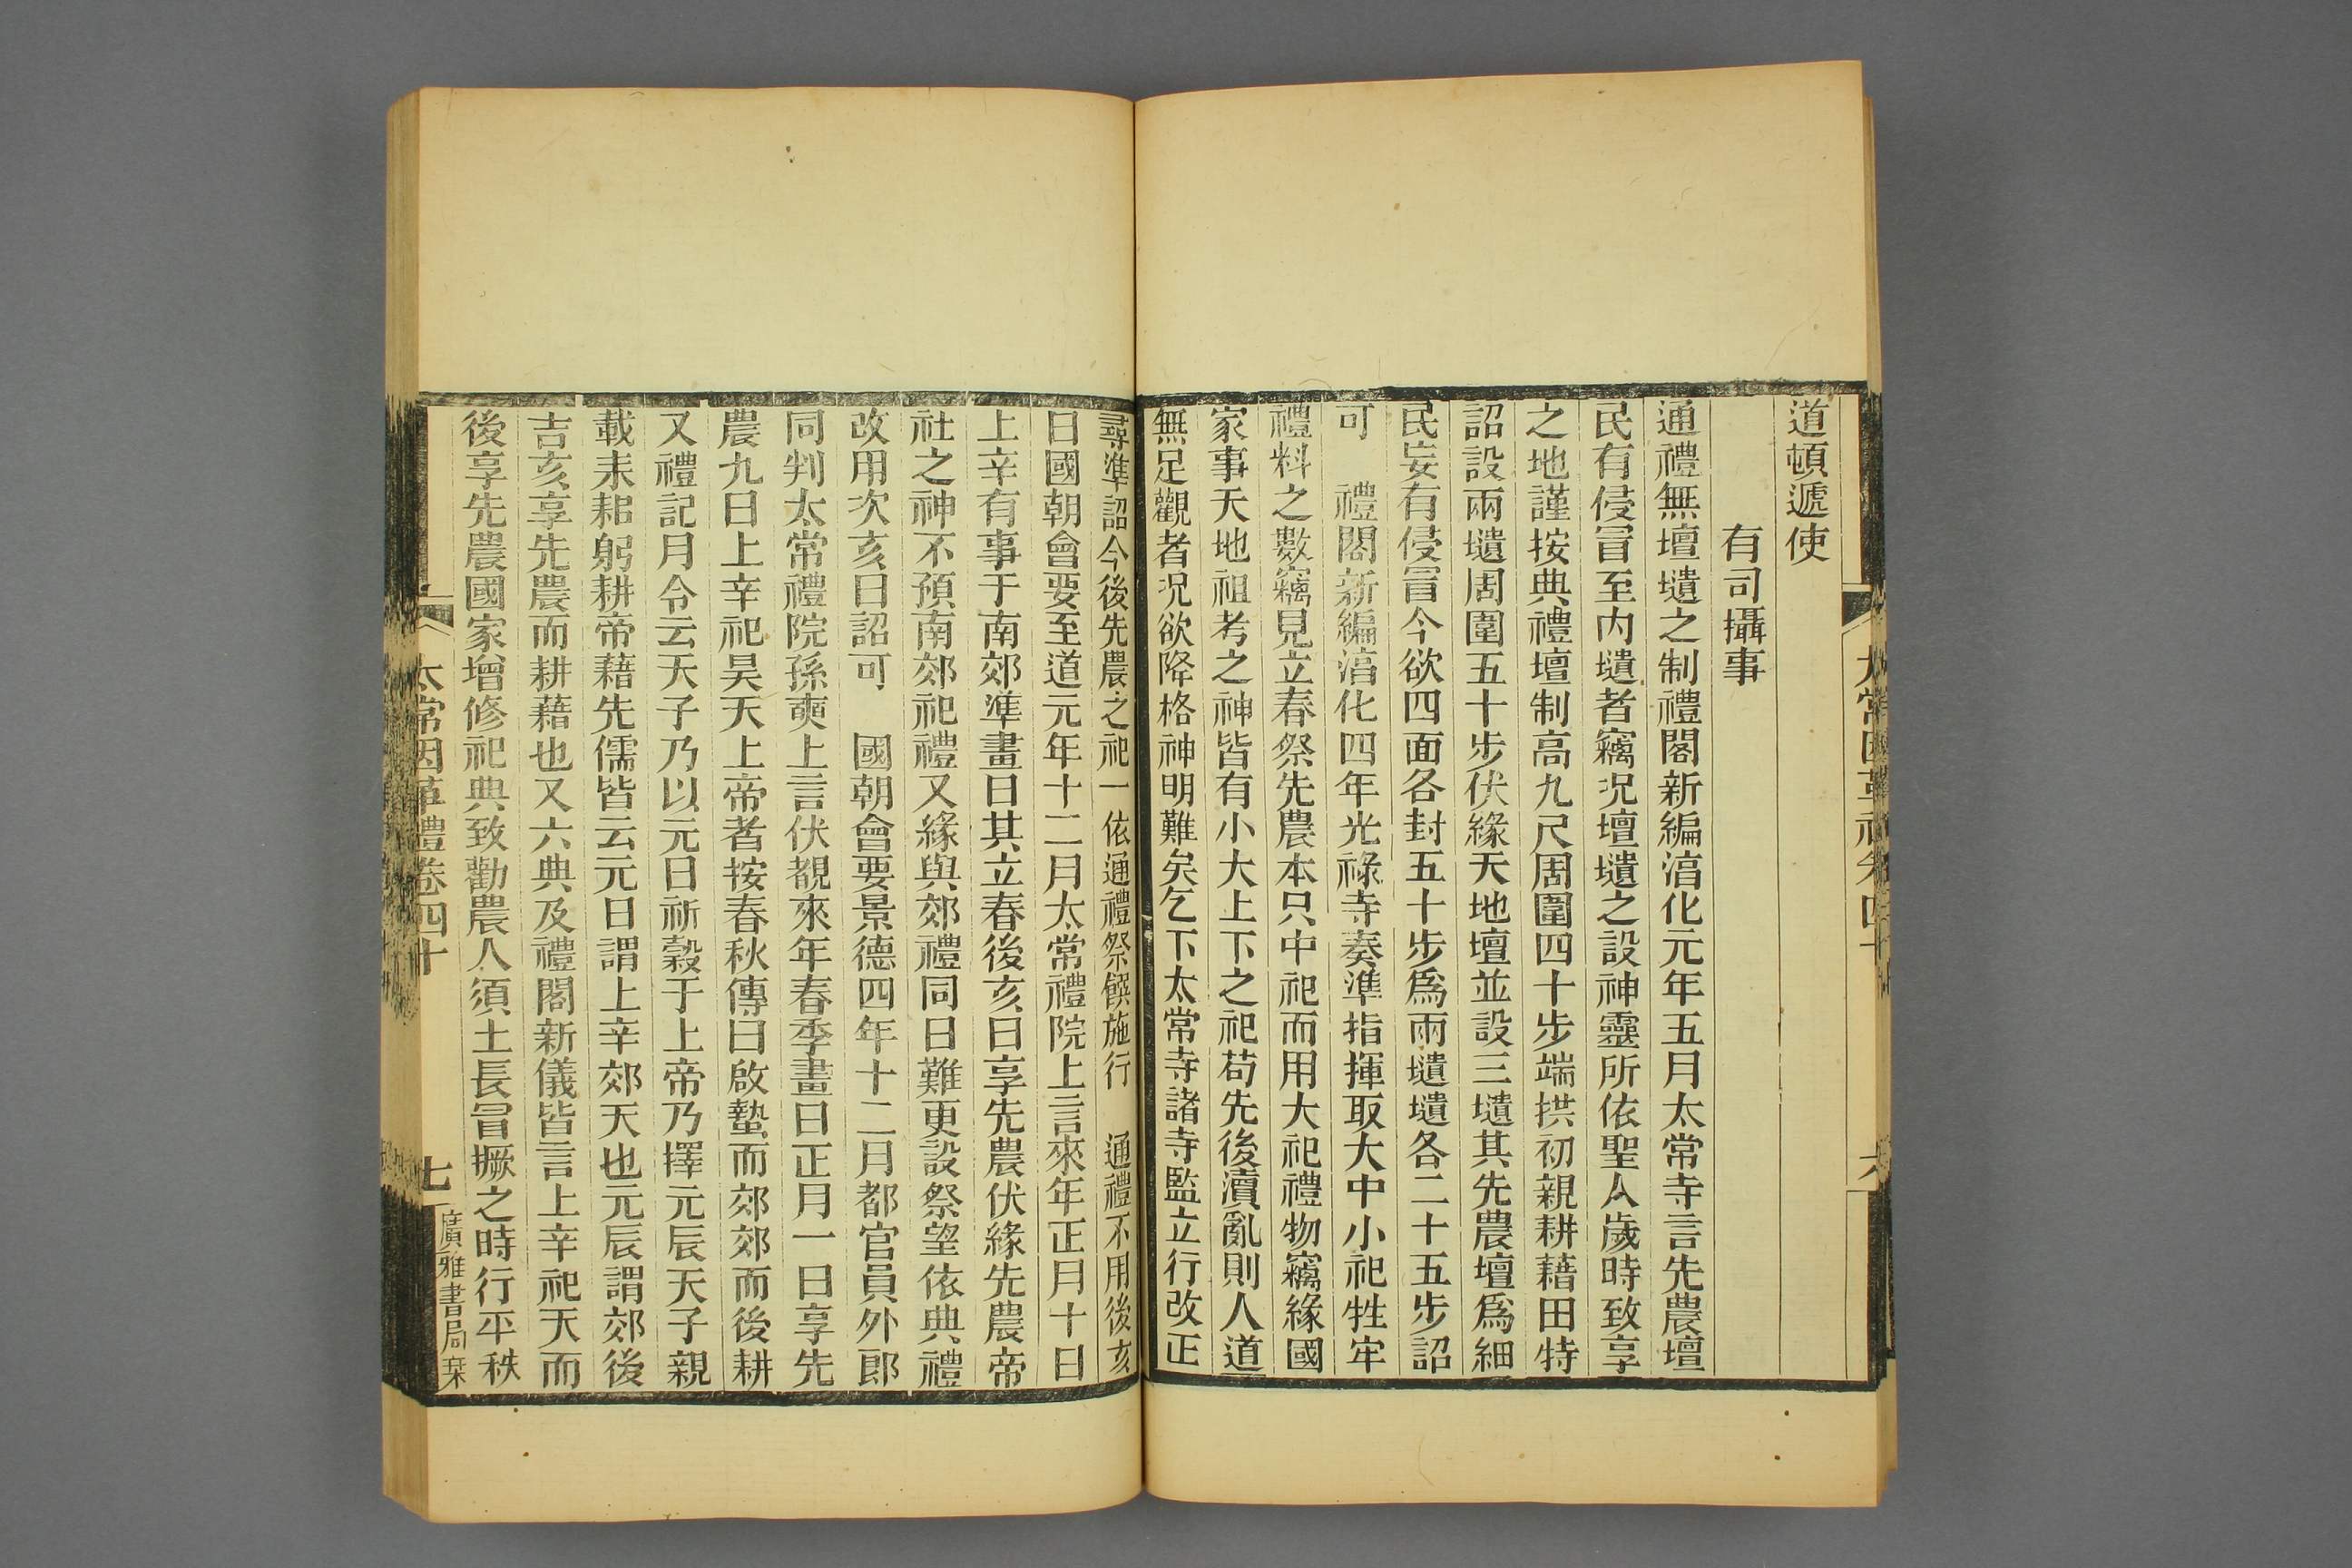 太常因革禮卷四十 六
道頓遞使
有司攝事
通禮無壇壝之制禮閣新編湻化元年五月太常寺言先農壇
民有侵冒至內壝者竊況壇壝之設神靈所依聖人歲時致享
之地謹按典禮壇制高九尺周圍四十步端拱初親耕藉田特
詔設兩壝周圍五十步伏緣天地壇並設三壝其先農壇爲細
民妄有侵冒今欲四面各封五十步爲兩壝壝各二十五步詔
可　禮閣新編湻化四年光祿寺奏準指揮取大中小祀牲牢
禮料之數竊見立春祭先農本只中祀而用大祀禮物竊緣國
家事天地祖考之神皆有小大上下之祀苟先後瀆亂則人道
無足觀者況欲降格神明難矣乞下太常寺諸寺監立行改正
尋準詔今後先農之祀一依通禮祭饌施行　通禮不用後亥
日國朝會要至道元年十二月太常禮院上言來年正月十日
上辛有事于南郊準畫日其立春後亥日享先農伏緣先農帝
社之神不預南郊祀禮又緣與郊禮同日難更設祭望依典禮
改用次亥日詔可　國朝會要景德四年十二月都官員外郎
同判太常禮院孫奭上言伏覩來年春季畫日正月一日享先
農九日上辛祀昊天上帝者按春秋傳曰啟蟄而郊郊而後耕
又禮記月令云天子乃以元日祈穀于上帝乃擇元辰天子親
載耒耜躬耕帝藉先儒皆云元日謂上辛郊天也元辰謂郊後
吉亥享先農而耕藉也又六典及禮閣新儀皆言上辛祀天而
後享先農國家增修祀典致勸農人須土長冒橛之時行平秩
太常因革禮卷四十 七 廣雅書局栞